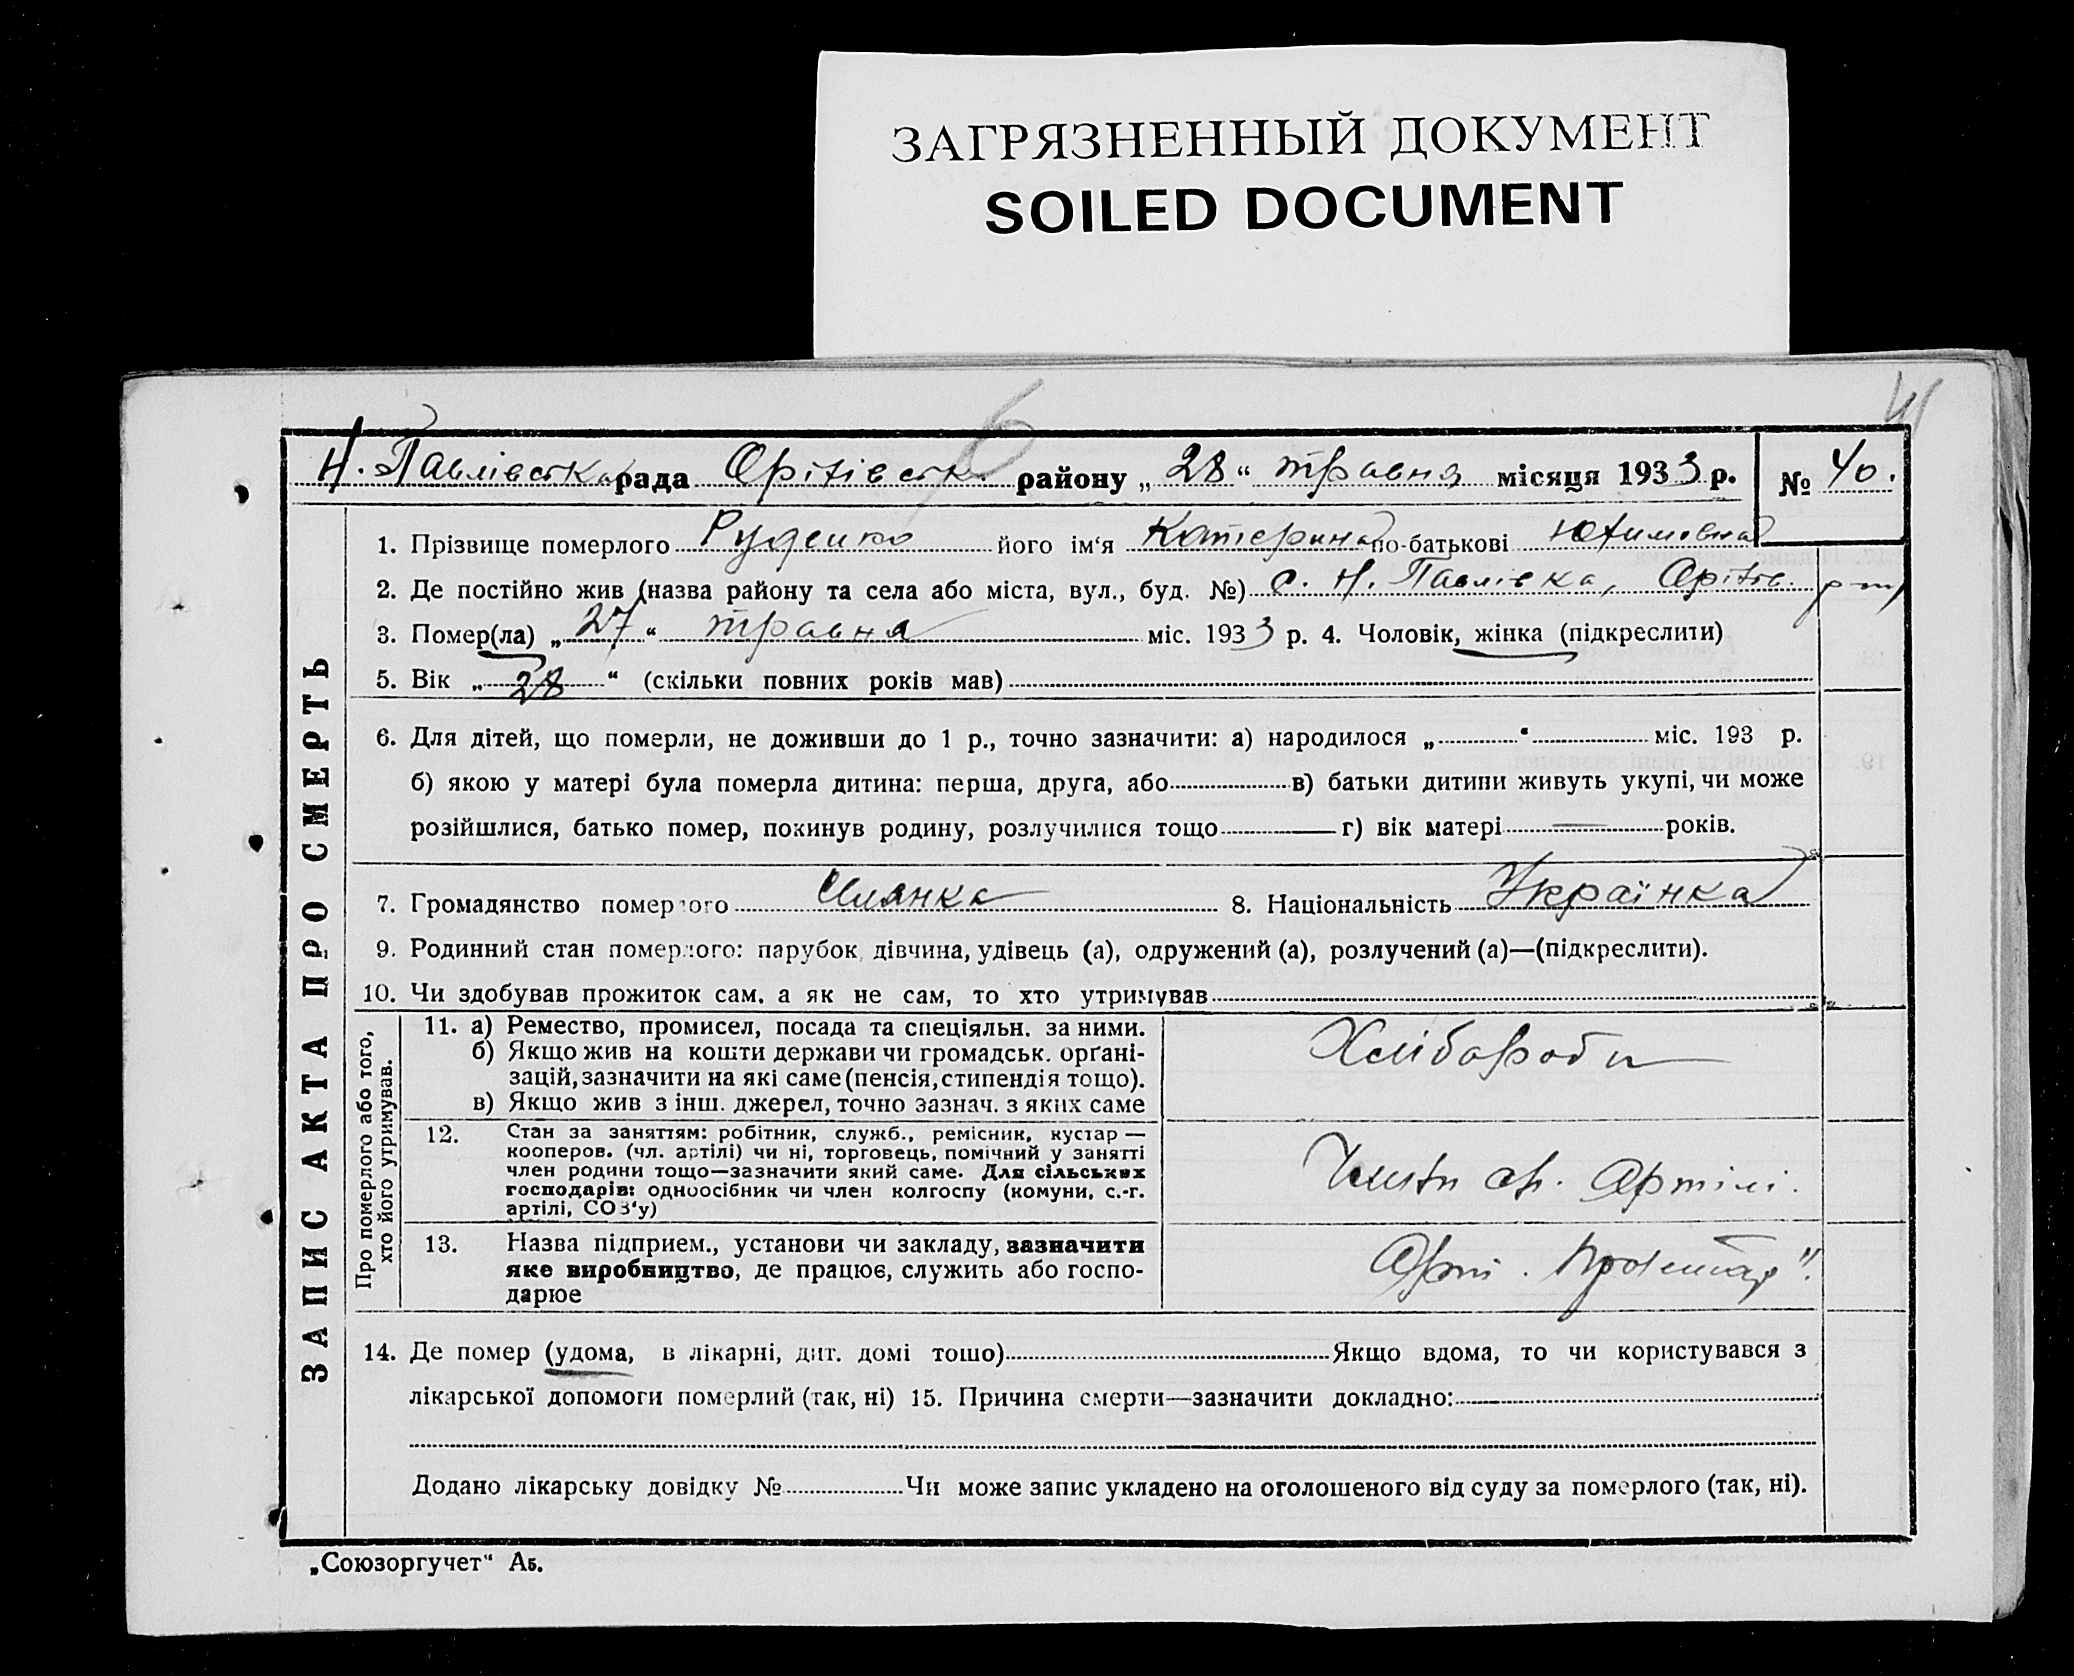 ЗАГРЯЗНЕННЫЙ ДОКУМЕНТ
SOILED DOCUMENT
6
Н. Павлівська рада Оріхівськ. району „28“ травня місяця 1933 р. № 40.
1. Прізвище померлого Руденко його ім‘я Катерина по-батькові Юхимовна
2. Де постійно жив (назва району та села або міста, вул., буд. №) с. Н. Павлівка, Оріхів. р-ну
3. Помер(ла) „27“ травня міс. 1933 р. 4. Чоловік, жінка (підкреслити)
5. Вік „28“ (скільки повних років мав)
6. Для дітей, що померли, не доживши до 1 р., точно зазначити: а) народилося „ “ міс. 193 р.
б) якою у матері була померла дитина: перша, друга, або в) батьки дитини живуть укупі, чи може
розійшлися, батько помер, покинув родину, розлучилися тощо г) вік матері років.
7. Громадянство померлого 8. Національність Українка
9. Родинний стан померлого: парубок, дівчина, удівець (а), одружений (а), розлучений (а)—(підкреслити).
10. Чи здобував прожиток сам, а як не сам, то хто утримував
ЗАПИС АКТА ПРО СМЕРТЬ
Про померлого або того,
хто його утримував.
11. а) Ремество, промисел, посада та спеціяльн. за ними.
б) Якщо жив на кошти держави чи громадськ. орґані-
зацій, зазначити на які саме (пенсія, стипендія тощо).
в) Якщо жив з інш. джерел, точно зазнач. з яких саме
Хлібороби
12. Стан за заняттям: робітник, служб., ремісник, кустар —
кооперов. (чл. артілі) чи ні, торговець, помічний у занятті
член родини тощо—зазначити який саме. Для сільських
господарів: одноосібник чи член колгоспу (комуни, с.-г.
артілі, СОЗ‘у)
Артілі.
13. Назва підприєм., установи чи закладу, зазначити
яке виробництво, де працює, служить або госпо-
дарює
14. Де помер (удома, в лікарні, дит. домі тощо) Якщо вдома, то чи користувався з
лікарської допомоги померлий (так, ні) 15. Причина смерти—зазначити докладно:
Додано лікарську довідку № Чи може запис укладено на оголошеного від суду за померлого (так, ні).
„Союзоргучет“ Аб.